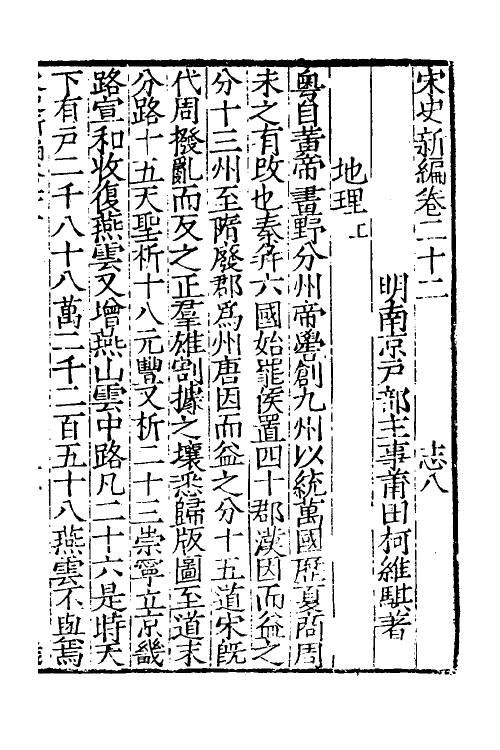 宋史新編卷二十二　志八
明南京戸部主事莆田柯維騏著
地理上
粤自黄帝畫野分州帝嚳創九州以統萬國歷夏商周
未之有改也秦并六國始罷侯置四十郡漢因而益之
分十三州至隋廢郡爲州唐因而益之分十五道宋旣
代周撥亂而反之正羣雄割據之壤悉歸版圖至道末
分路十五天聖析十八元豐又析二十三崇寧立京畿
路宣和收復燕雲又增燕山雲中路凡二十六是時天
下有戸二千八十八萬二千二百五十八燕雲不與焉